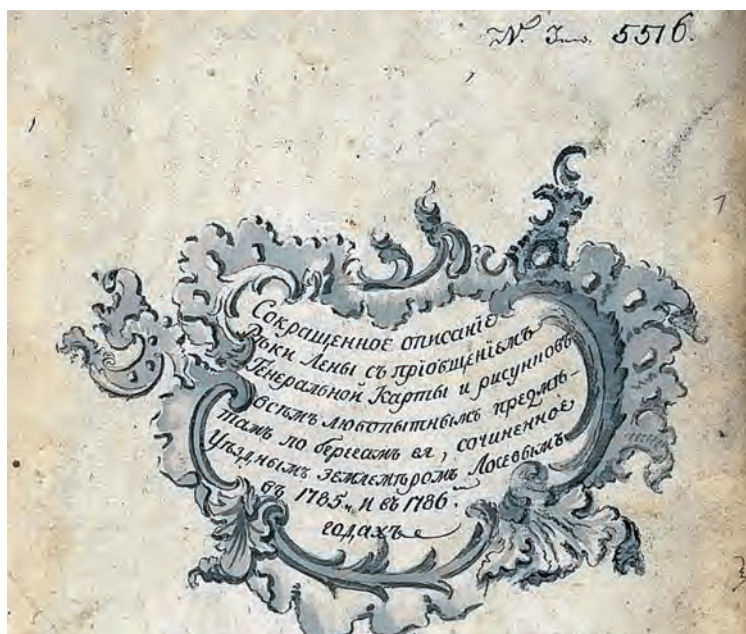 N. Inv. 5516.
Сокращенное описанїе
Рѣки Лены съ прїобщенїемъ
Генеральной Карты и рисунковъ
всѣмъ любопытнымъ предмѣ-
тамъ по берегамъ ея, сочиненное
Уѣзднымъ Землемѣромъ Лосевымъ
въ 1785. и въ 1786.
годахъ